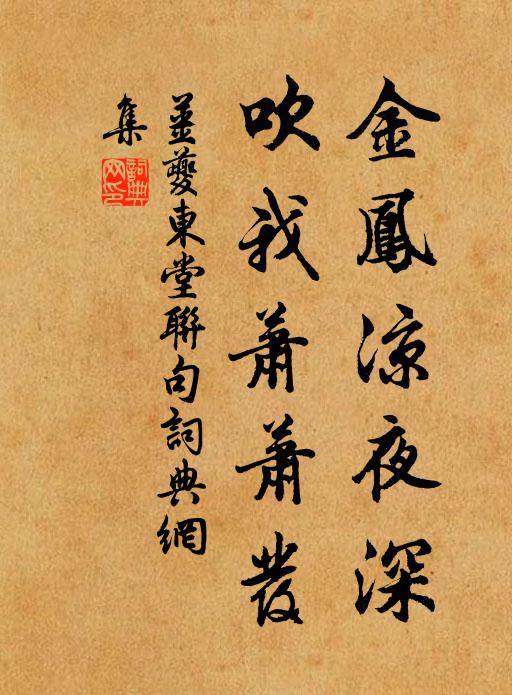 金鳳涼夜深
吹我蕭蕭髮
姜夔東堂聯句詞典網
集
詞典
网印